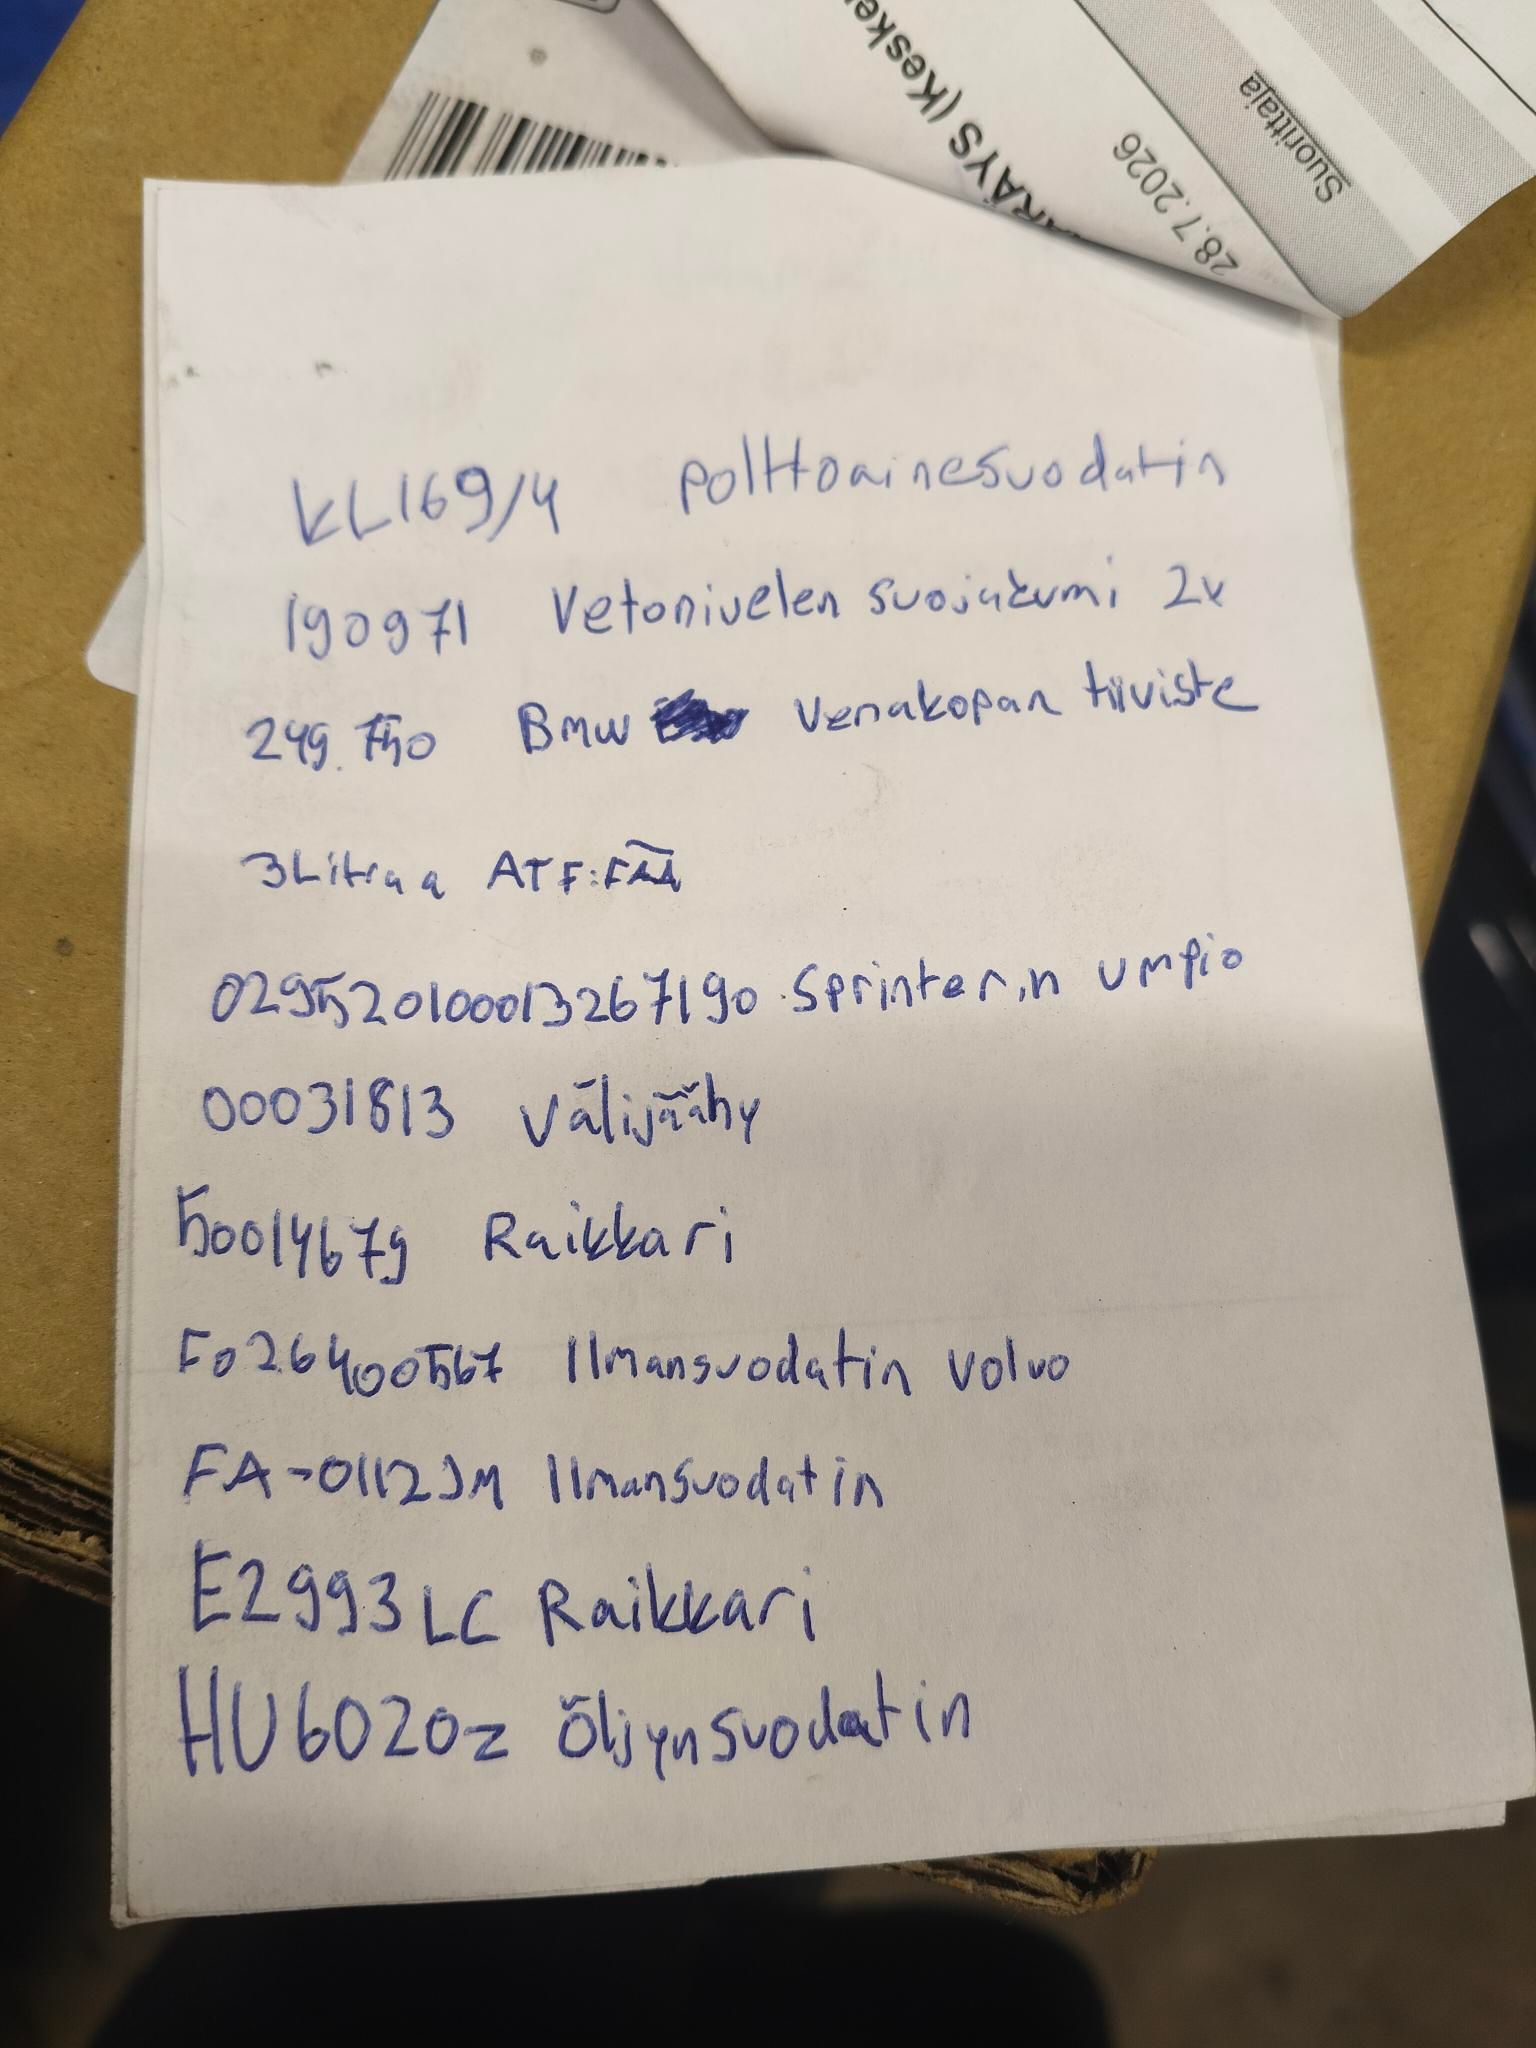 ÄRÄYS (Keske
28.7.2026
Suorittaja
KL169/4 polttoainesuodatin
190971 Vetonivelen suojakumi 2x
249.750 BMW Venakopan tiiviste
3Litraa ATF:ÄÄ
029520100013267190 Sprinterin umpio
00031813 Välijäähy
50014679 Raikkari
F026400567 Ilmansuodatin volvo
FA-0112JM Ilmansuodatin
E2993LC Raikkari
HU6020z Öljynsuodatin